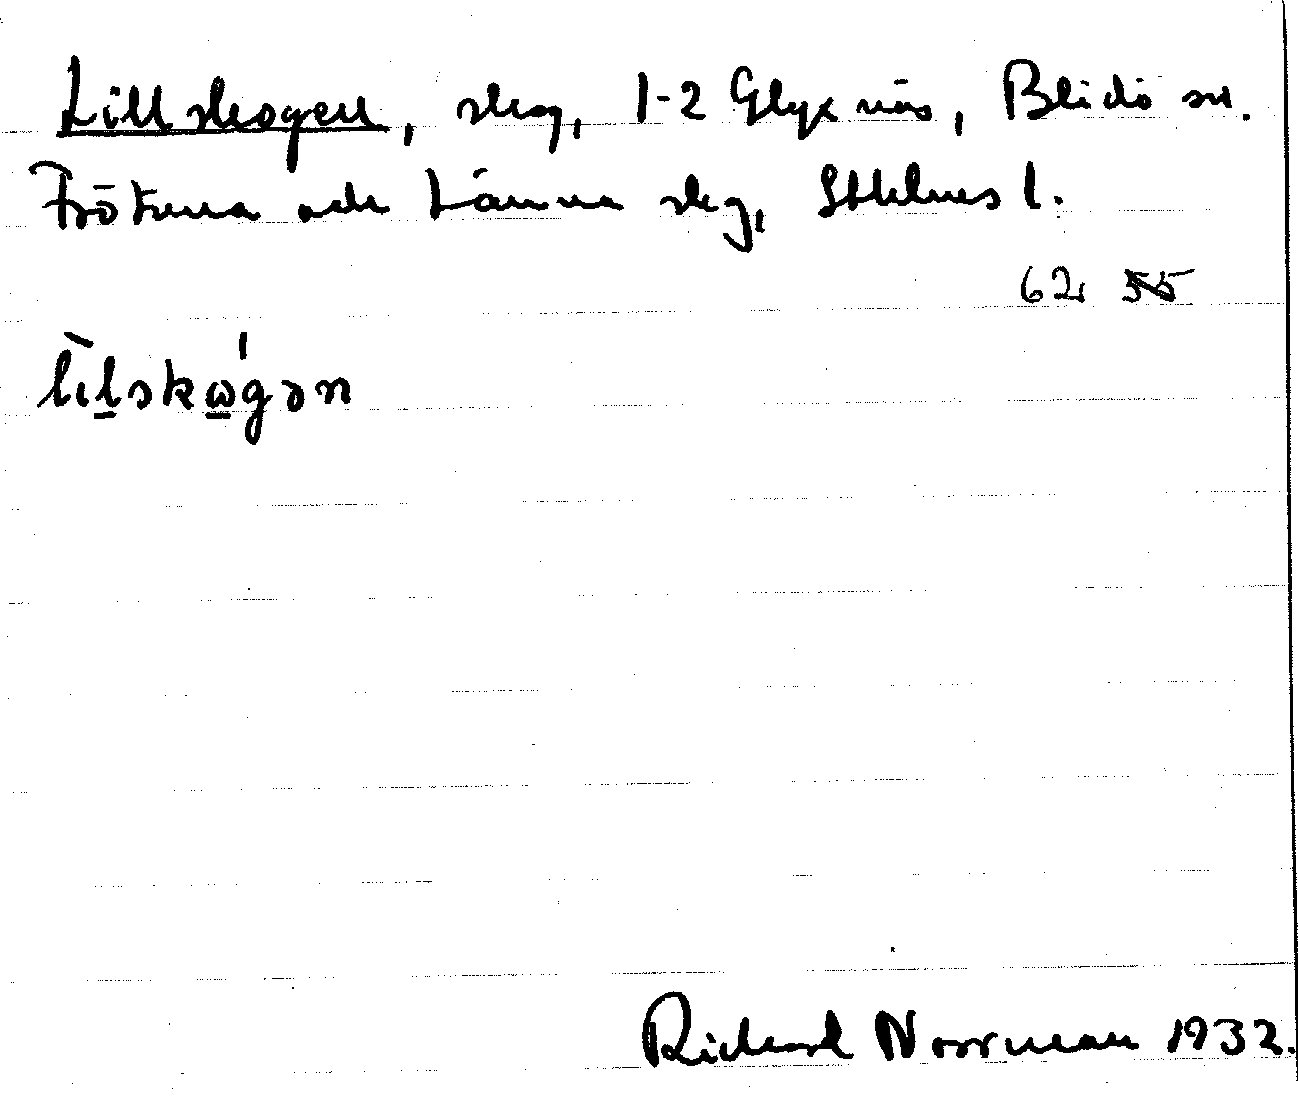 Lillskogen, skog, 1-2 Glyxnäs, Blidö sn.
Frötuna och Länna skg, Sthlms l.
62
Richard Norrman 1932.